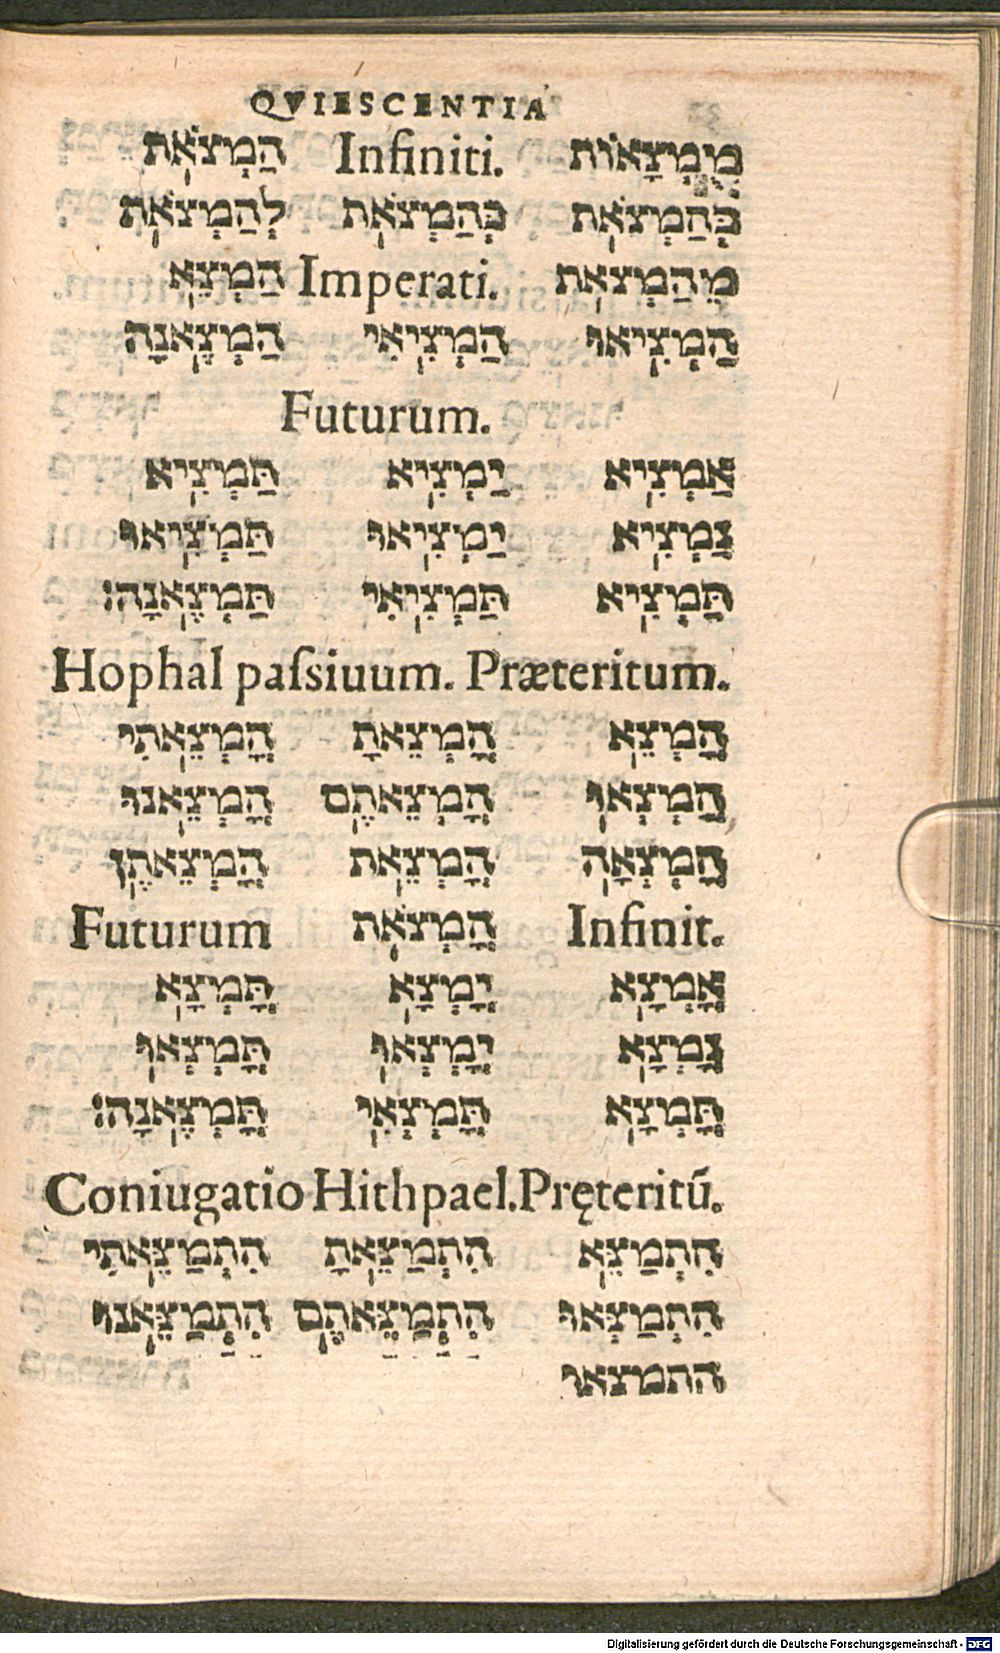 QVIESCENTIA
מִמְצָאוֹת Infiniti. הַמְצֹאת
בְּהַמְצֹאת כְּהַמְצֹאת לְהַמְצֹאת
מֵהַמְצֹאת Imperati. הַמְצֵא
הַמְצִיאוּ הַמְצִיאִי הַמְצֶאנָה
Futurum.
אַמְצִיא יַמְצִיא תַּמְצִיא
נַמְצִיא יַמְצִיאוּ תַּמְצִיאוּ
תַּמְצִיא תַּמְצִיאִי תַּמְצֶאנָה:
Hophal paſsiuum. Præteritum.
הֳמְצֵא הֳמְצֵאתָ הֳמְצֵאתִי
הֳמְצְאוּ הֳמְצֵאתֶם הֳמְצֵאנוּ
הֳמְצְאָה הֳמְצֵאת הֳמְצֵאתֶן
Infinit. הֳמְצֹאת Futurum
אֳמְצָא יֳמְצָא תֳּמְצָא
נֳמְצָא יֳמְצְאוּ תֳּמְצְאוּ
תֳּמְצָא תֳּמְצְאִי תֳּמְצֶאנָה:
Coniugatio Hithpael. Pręteritū.
הִתְמַצֵּא הִתְמַצֵּאתָ הִתְמַצֵּאתִי
הִתְמַצְּאוּ הִתְמַצֵּאתֶם הִתְמַצֵּאנוּ
התמצאו
Digitalisierung gefördert durch die Deutsche Forschungsgemeinschaft - DFG